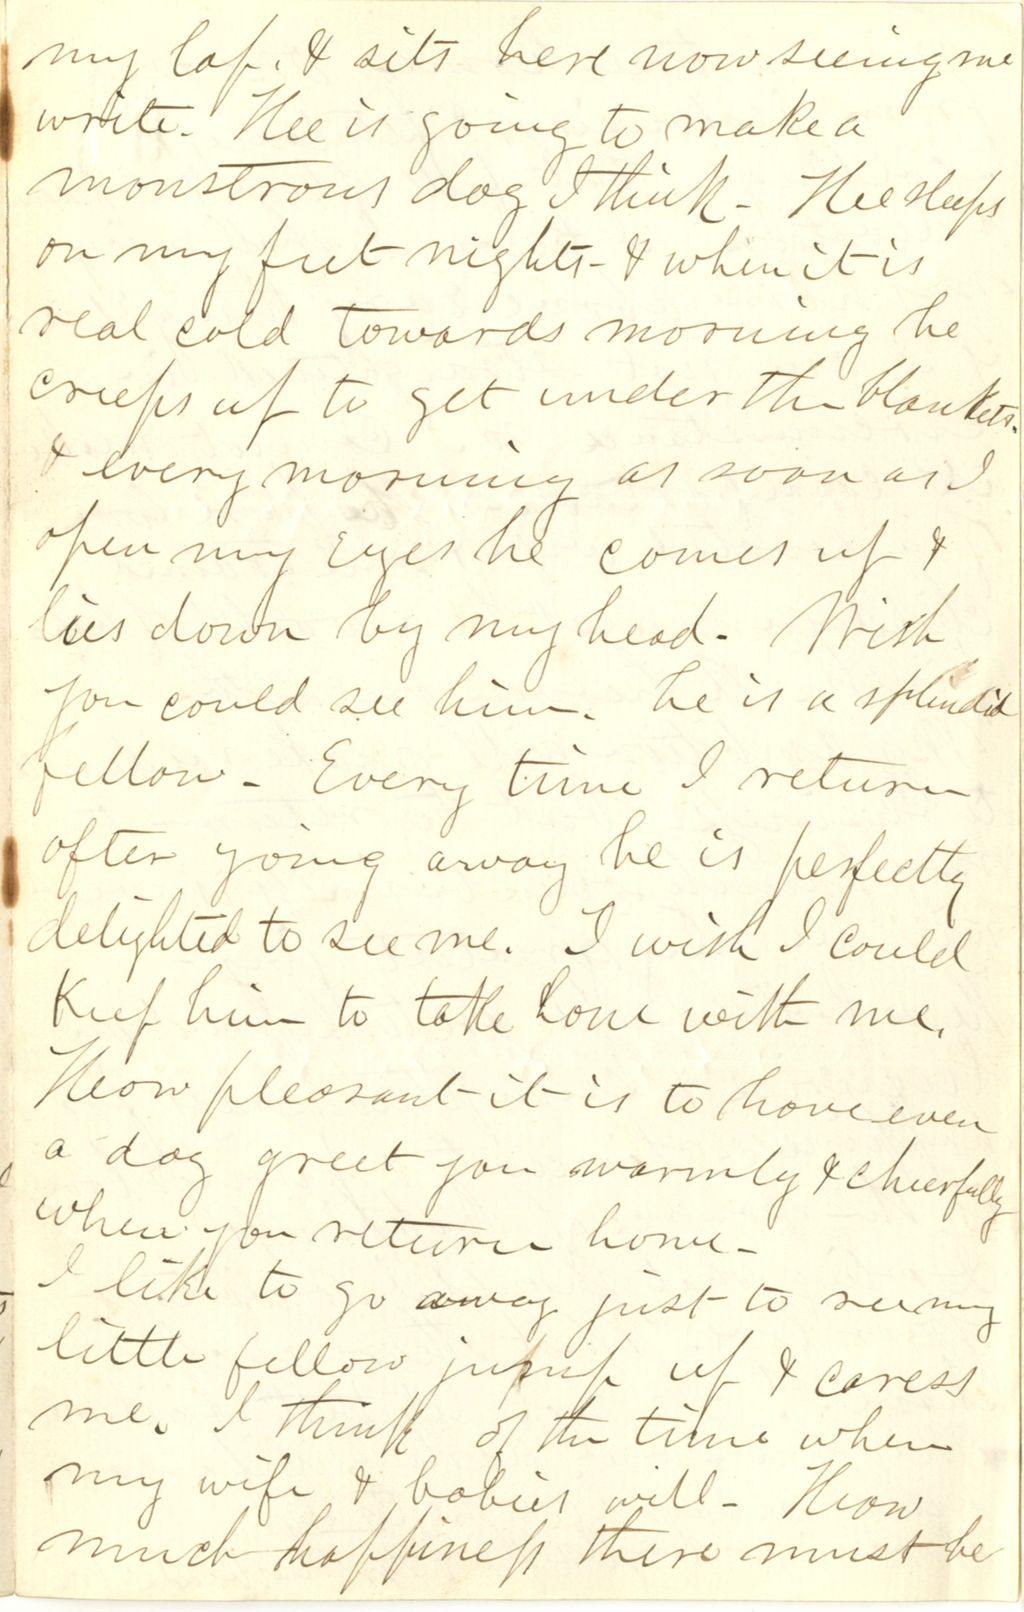 my lap. & sits here now seeing me
write. He is going to make a
monstrous dog I think - He sleeps
on my feet nights - & when it is
real cold towards morning he
creeps up to get under the blankets.
& every morning as soon as I
open my eyes he comes up &
lies down by my head - Wish
you could see him. he is a splendid
fellow - Every time I return
after going away he is perfectly
delighted to see me. I wish I could
Keep him to take home with me.
How pleasant it is to have even
a dog greet you warmly & cheerfully
when you return home -
I like to go away just to see my
little fellow jump up & caress
me. I think of the time when
my wife & babies will - How
much happiness there must be